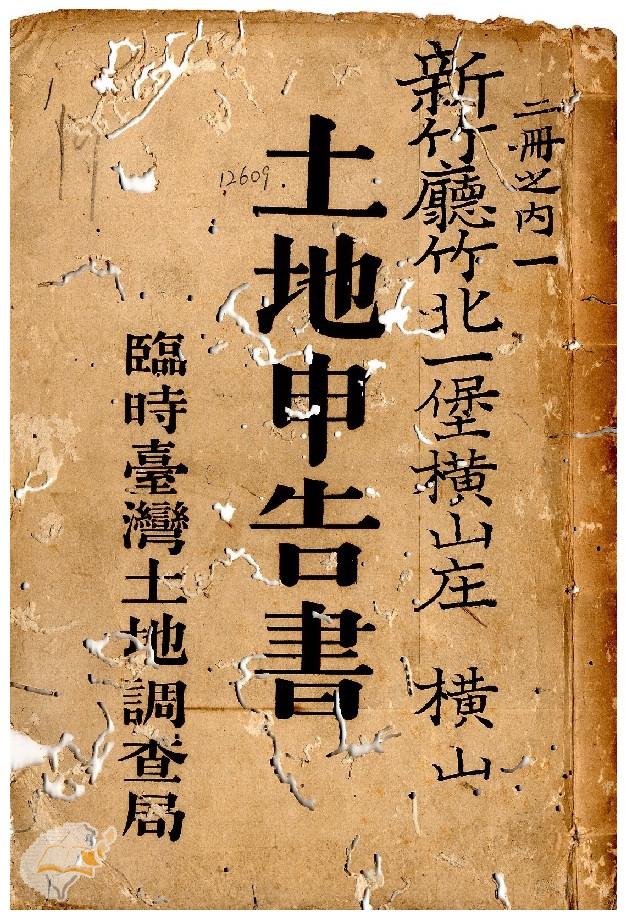 二冊之内一
新竹廳竹北一堡橫山庄 橫山
土地申告書
12609
臨時臺灣土地調查局